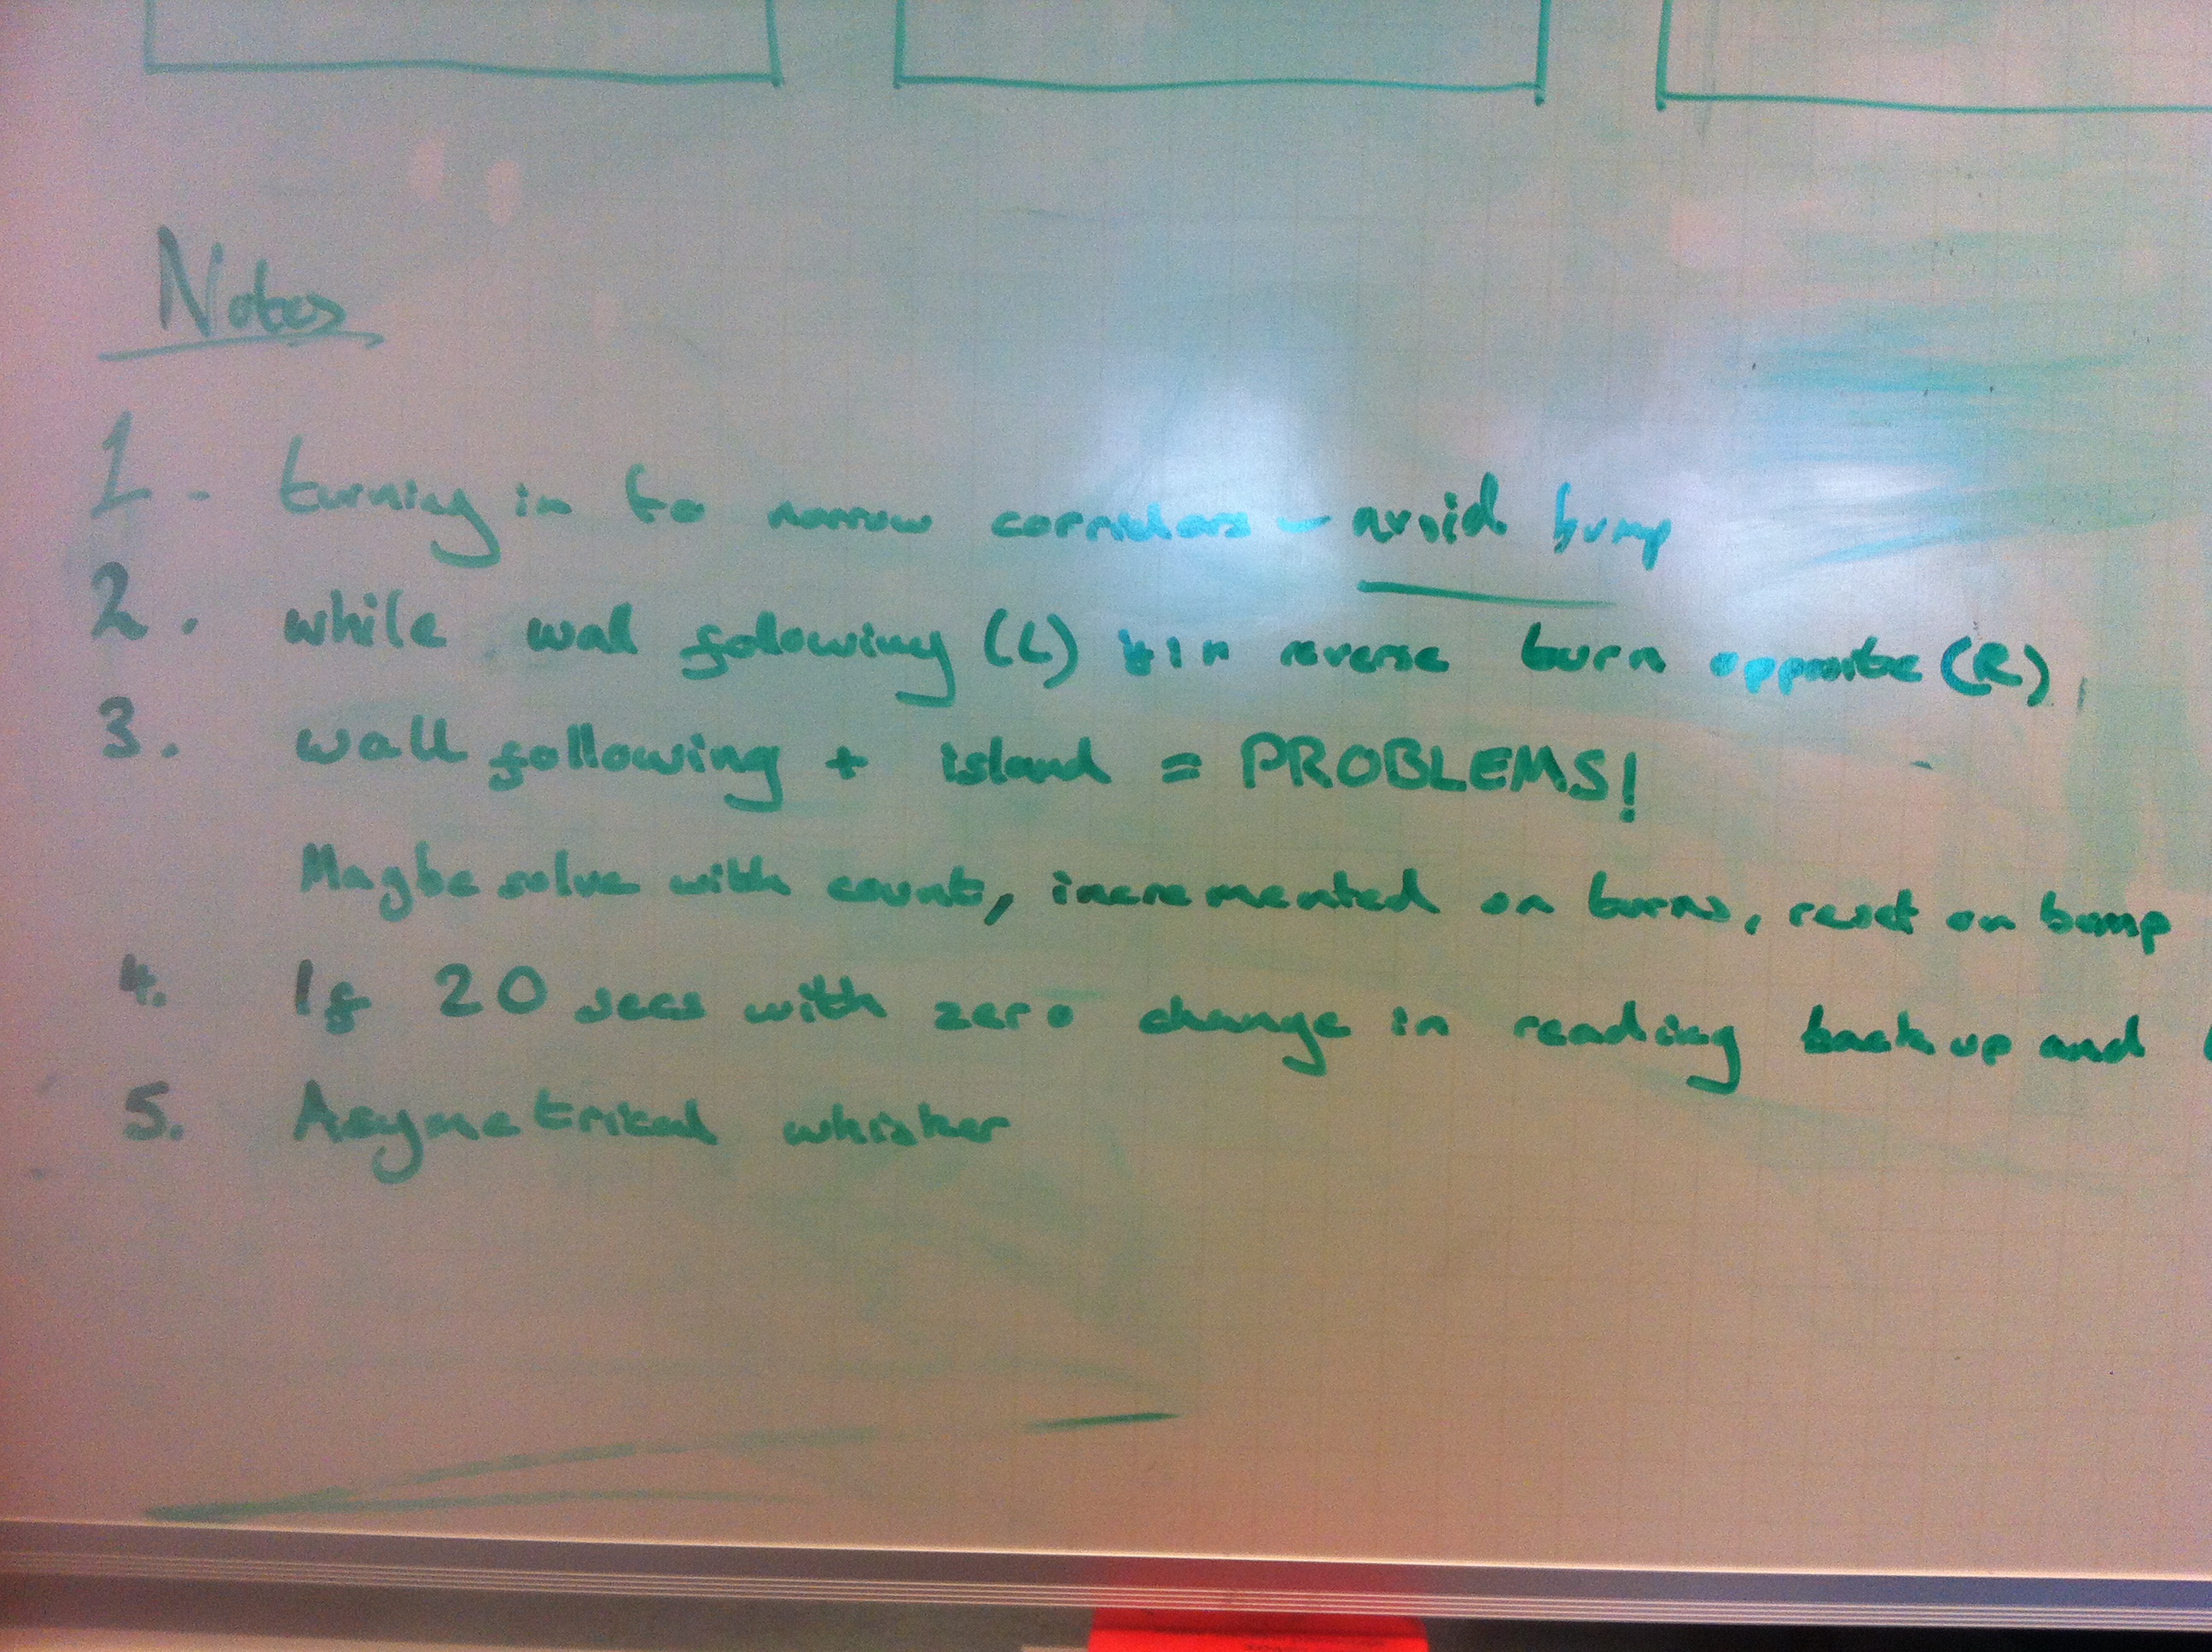 Notes
1 - turning in to narrow corridors - avoid bump
2. while wal folowing (L) in reverse turn opposite (R)
3. wall following + island = PROBLEMS!
Maybe solve with count, incremented on turns, reset on bump
4. If 20 secs with zero change in reading back up and
5. Asymetrical whisker